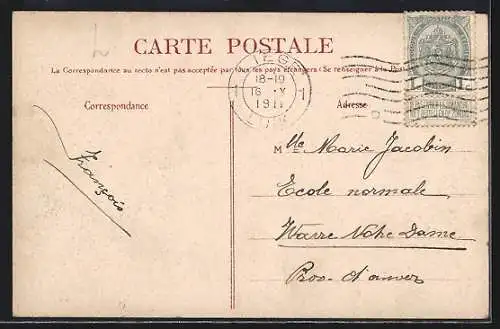 CARTE POSTALE
La Correspondance au recto n'est pas acceptée par tous les pays étrangers (Se renseigner à la Poste
LIEGE
18-19
16 X
1911
Correspondance
Adresse
François
Mlle Marie Jacobin
Ecole normale
Wavre Notre Dame
Prov. d'anvers
1